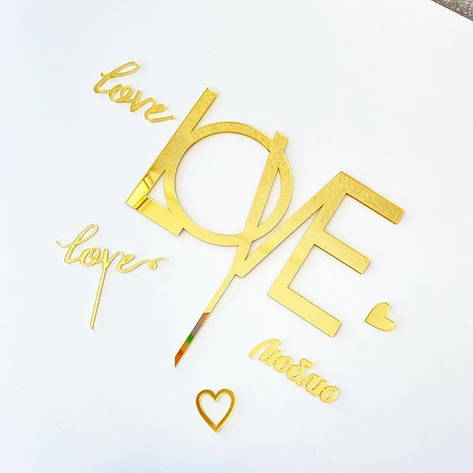 love
LOVE
love
Люблю